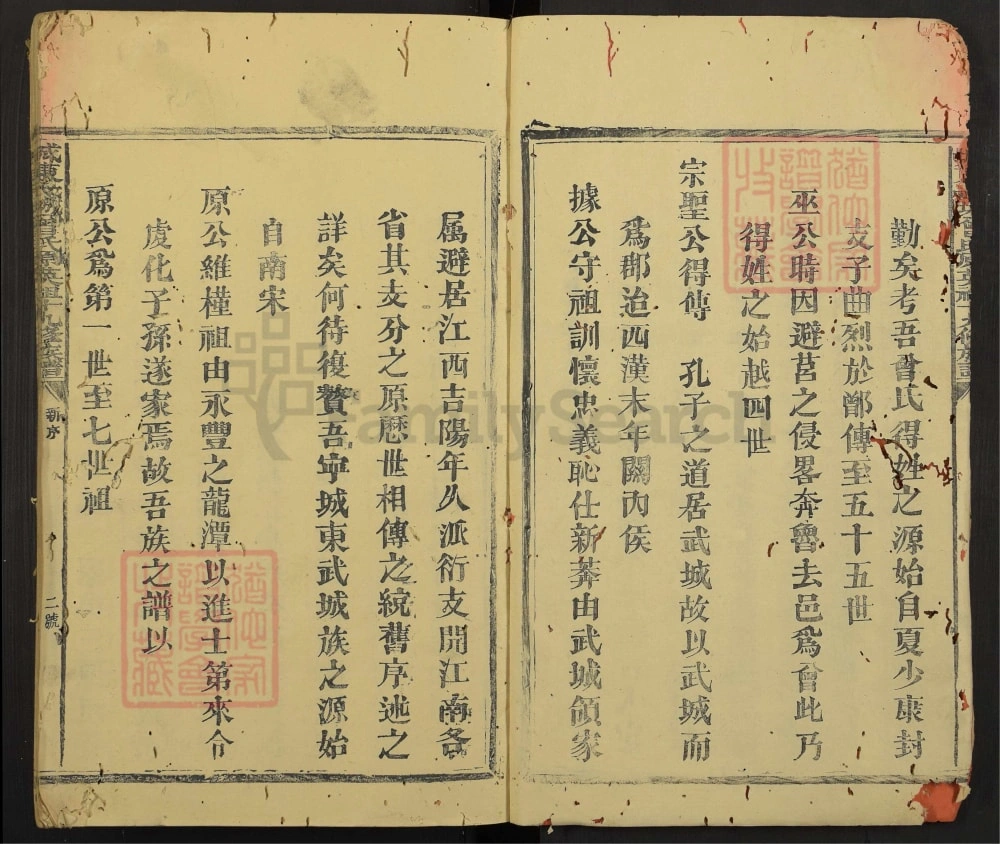 勤矣考吾曾氏得姓之源始自夏少康封
支子曲烈於鄫傳至五十五世
巫公時因避莒之侵畧奔魯去邑爲曾此乃
得姓之始越四世
宗聖公得傳 孔子之道居武城故以武城而
爲郡迨西漢末年關內侯
據公守祖訓懷忠義恥仕新莽由武城領家
属避居江西吉陽年久派衍支開江南各
省其支分之原歷世相傳之統舊序述之
詳矣何待復贅吾寕城東武城族之源始
自南宋
原公維槿祖由永豐之龍潭以進士第來令
虔化子孫遂家焉故吾族之譜以
原公爲第一世至七世祖
新序
二號
FamilySearch